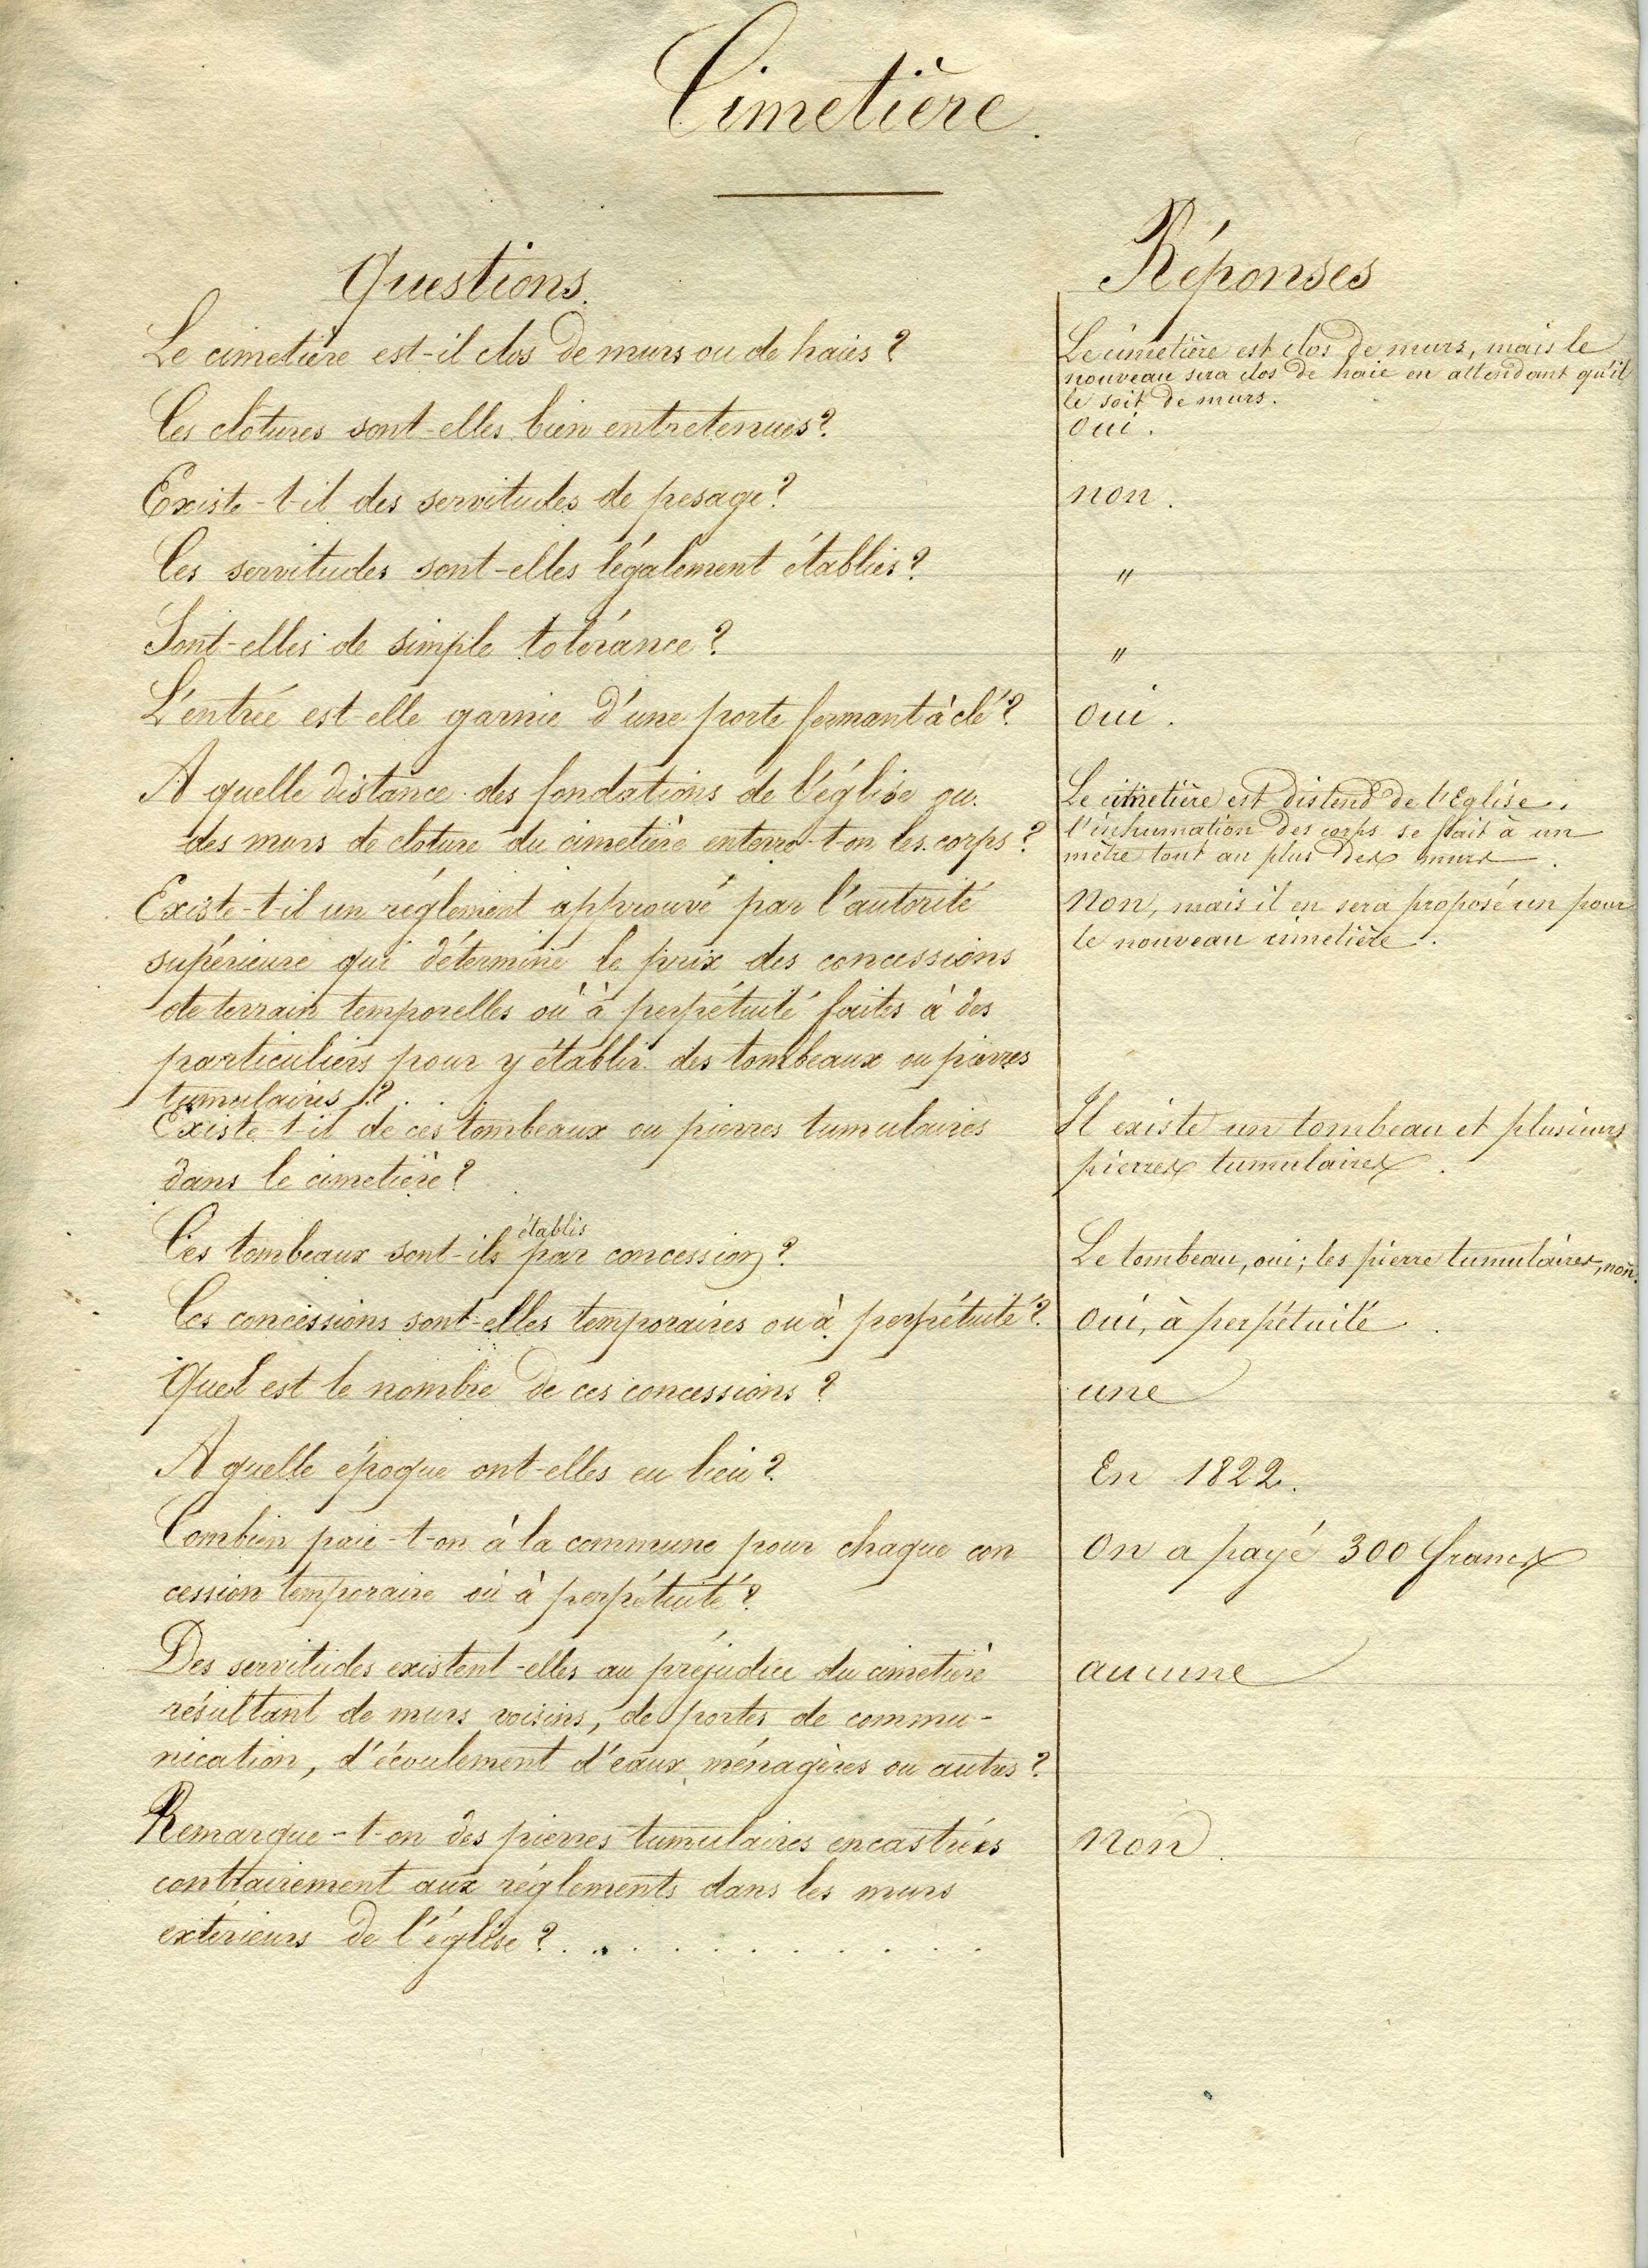 Cimetière.
Questions.
Réponses
Le cimetière est-il clos de murs ou de haies ?
Le cimetière est clos de murs, mais le
nouveau sera clos de haie en attendant qu'il
le soit de murs.
Ces clôtures sont-elles bien entretenues ?
oui.
Existe-t-il des servitudes de pesage ?
non.
Ces servitudes sont-elles légalement établies ?
"
Sont-elles de simple tolérance ?
"
L'entrée est-elle garnie d'une porte fermant à clé ?
oui.
A quelle distance des fondations de l'église ou
des murs de cloture du cimetière enterre-t-on les corps ?
Le cimetière est distend de l'Eglise.
l'inhumation des corps se fait à un
mètre tout au plus des murs.
Existe-t-il un réglement approuvé par l'autorité
supérieure qui détermine le prix des concessions
de terrain temporelles ou à perpétuité faites à des
particuliers pour y établir des tombeaux ou pierres
tumulaires ?
Non, mais il en sera proposé un pour
le nouveau cimetière.
Existe-t-il de ces tombeaux ou pierres tumulaires
dans le cimetière ?
Il existe un tombeau et plusieurs
pierres tumulaires.
Ces tombeaux sont-ils établis par concession ?
Le tombeau, oui; les pierre tumulaires, non.
Ces concessions sont-elles temporaires ou à perpétuité ?
Oui, à perpétuité.
Quel est le nombre de ces concessions ?
une
A quelle époque ont-elles eu lieu ?
En 1822.
Combien paie-t-on à la commune pour chaque con
cession temporaire ou à perpétuité ?
On a payé 300 francs
Des servitudes existent-elles au préjudice du cimetière
résultant de murs voisins, de portes de commu-
nication, d'écoulement d'eaux ménagères ou autres ?
aucune
Remarque-t-on des pierres tumulaires encastrées
contrairement aux réglements dans les murs
extérieurs de l'église ? . . . . . . . . . . . .
Non.